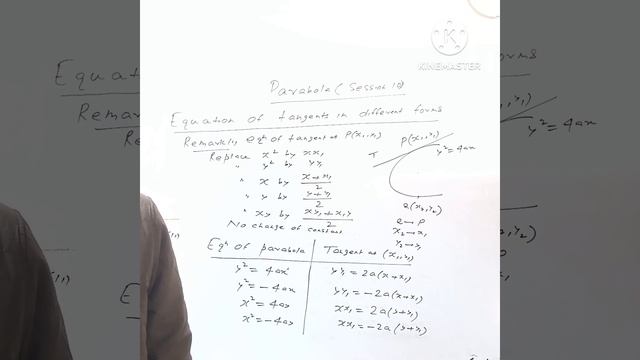 KINEMASTER
Parabola (Session 10)
Equation of tangents in different forms
Remark 1, eqn of tangent at P(x₁, y₁)
Replace x² by xx₁
" y² by yy₁
" x by (x+x₁)/2
" y by (y+y₁)/2
" xy by (xy₁+x₁y)/2
No change of constant
T
P(x₁, y₁)
y² = 4ax
Q(x₂, y₂)
Q → P
x₂ → x₁
y₂ → y₁
Eqn of parabola Tangent at (x₁, y₁)
y² = 4ax yy₁ = 2a(x+x₁)
y² = -4ax yy₁ = -2a(x+x₁)
x² = 4ay xx₁ = 2a(y+y₁)
x² = -4ay xx₁ = -2a(y+y₁)